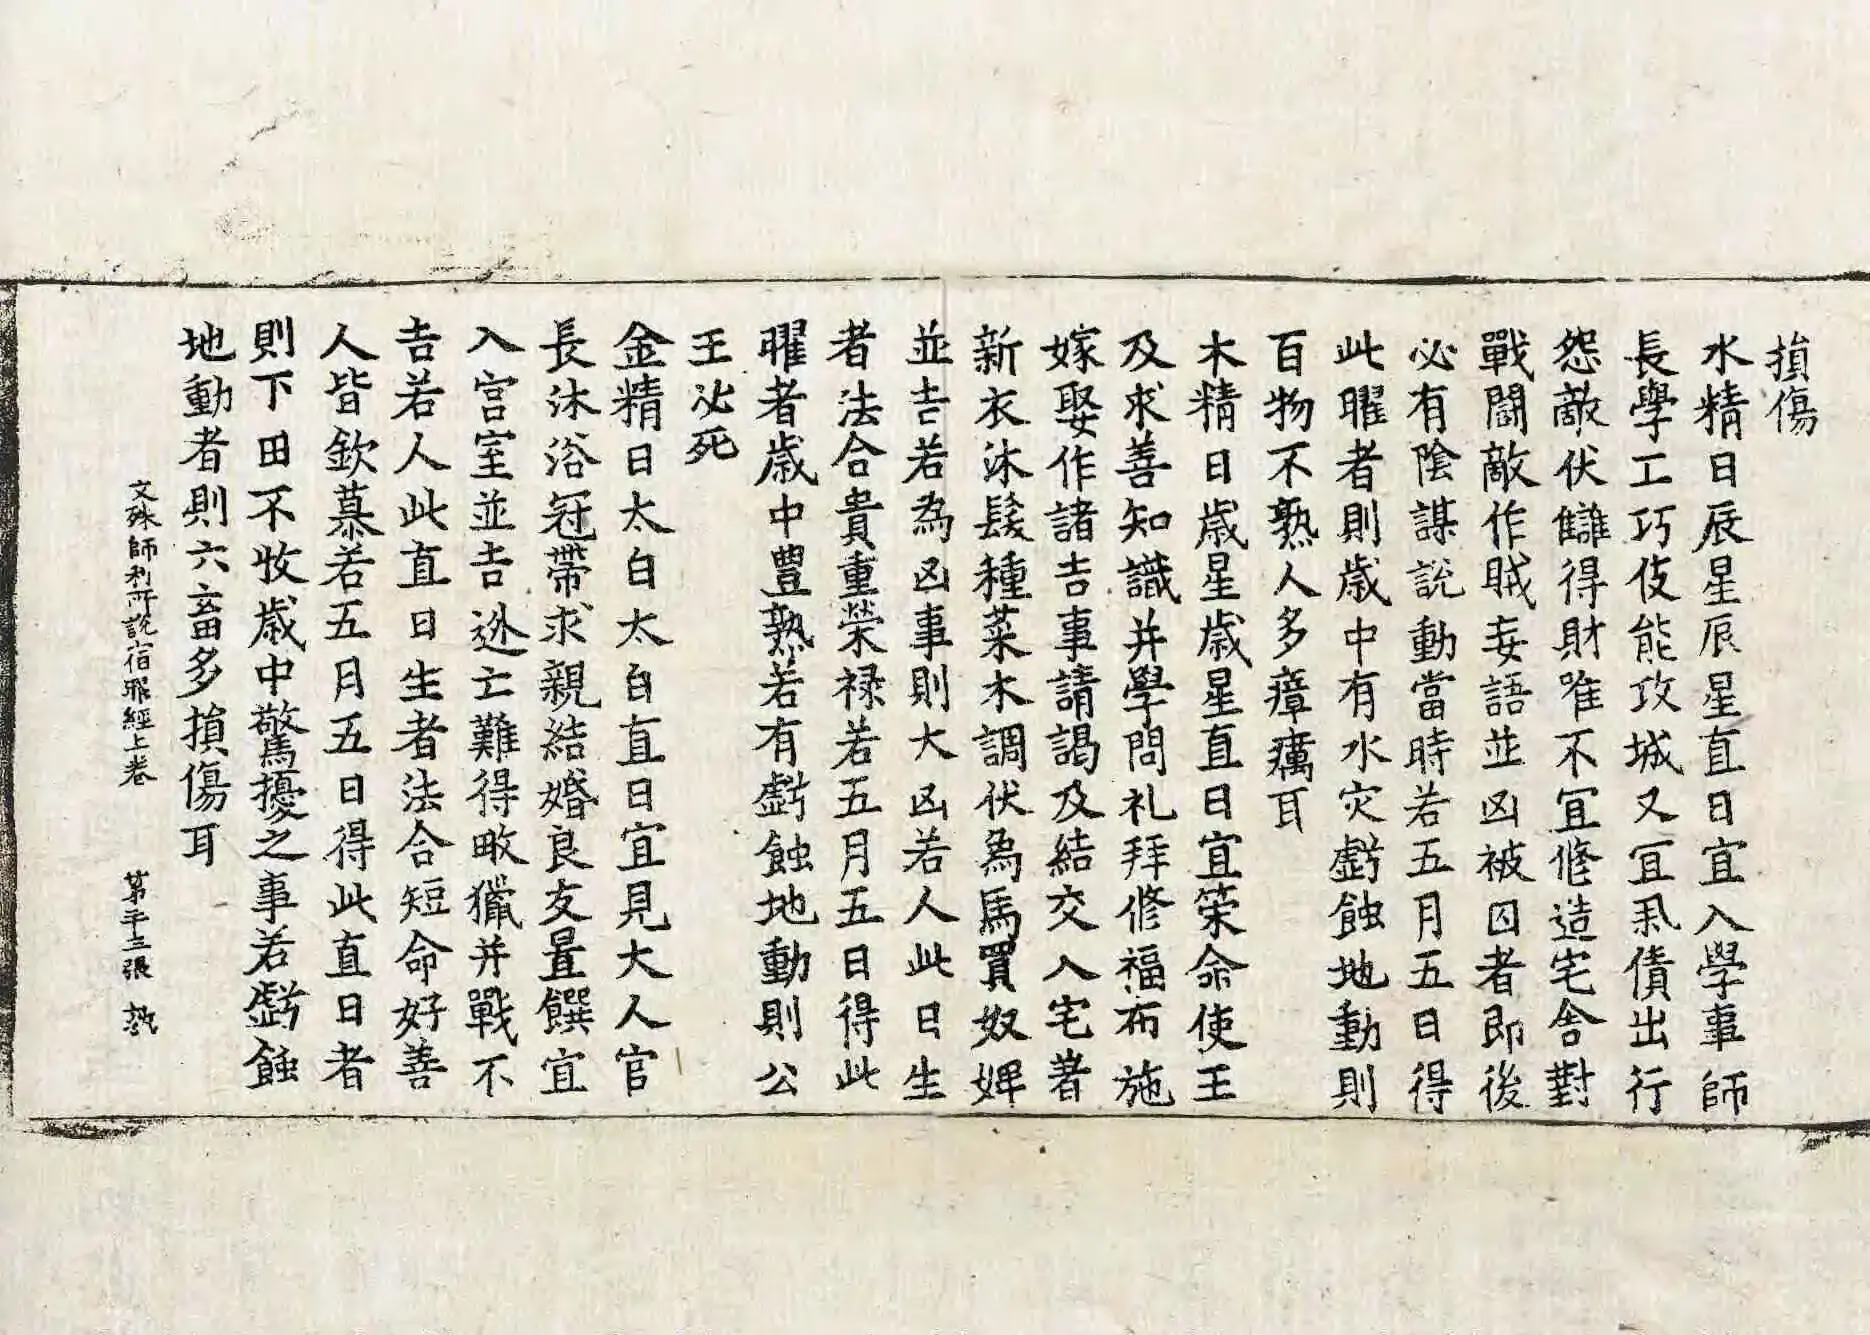 損傷
水精日辰星辰星直日宜入學事師
長學工巧伎能攻城又冝公債出行
怨敵伏讎得財唯不冝修造宅舍對
戰鬪敵作賊妄語並凶被囚者即後
必有陰謀說動當時若五月五日得
此曜者則歲中有水灾虧蝕地動則
百物不熟人多瘴癘耳
木精日歲星歲星直日宜策命使王
及求善知識并學問礼拜修福布施
嫁娶作諸吉事請謁及結交入宅著
新衣沐髮種菜木調伏為馬買奴婢
並吉若為凶事則大凶若人此日生
者法合貴重榮禄若五月五日得此
曜者歲中豊熟若有虧蝕地動則公
王必死
金精日太白太白直日宜見大人官
長沐浴冠帶求親結婚良友置饌宜
入宮室並吉逃亡難得畋獵并戰不
吉若人此直日生者法合短命好善
人皆欽慕若五月五日得此直日者
則下田不收歲中驚擾之事若虧蝕
地動者則六畜多損傷耳
文殊師利所說宿曜經上卷 第三張